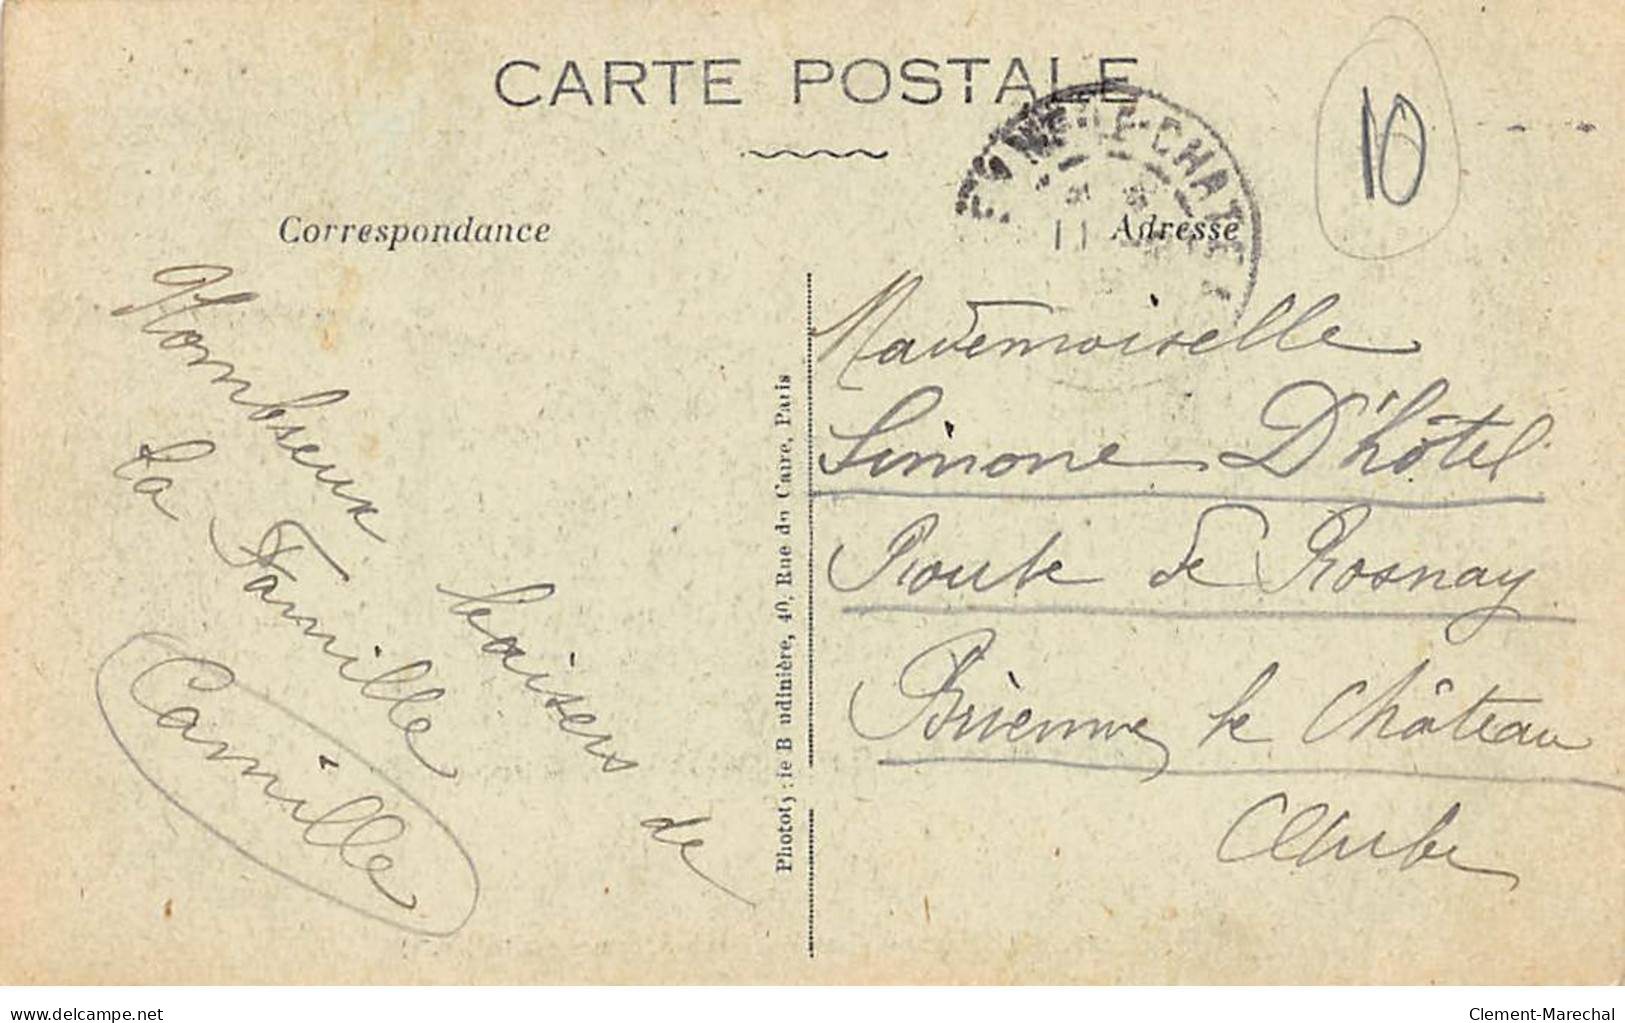 CARTE POSTALE
Correspondance
Adresse
10
Nombseux baisers de
la Famille
Camille
Phototypie Baudinière, 40, Rue du Caire, Paris
Mademoiselle
Simone D'hôtel
Route de Rosnay
Brienne le Château
Aube
www.delcampe.net
Clement-Marechal